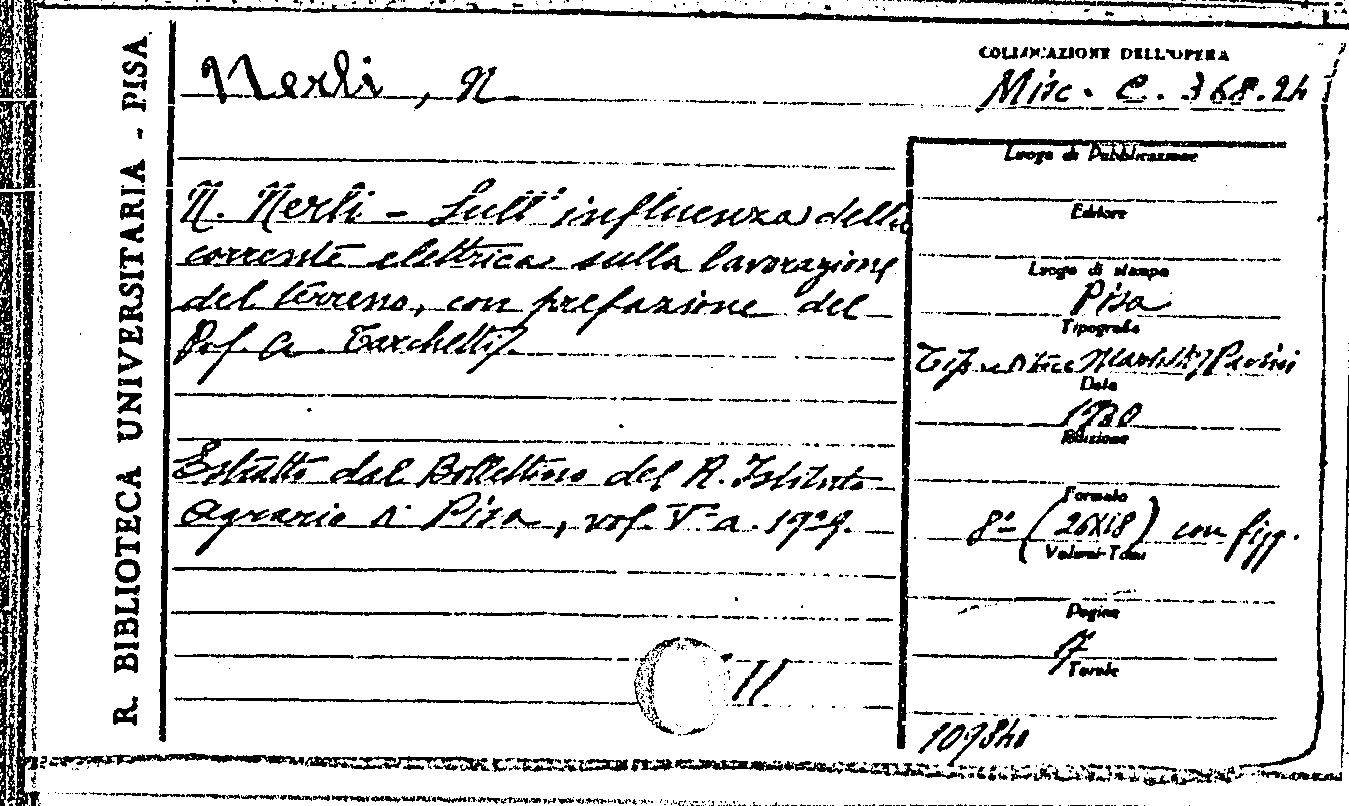 R. BIBLIOTECA UNIVERSITARIA - PISA
Nerli, N
COLLOCAZIONE DELL'OPERA
Misc. C. 368.24
N. Nerli - Sull' influenza della
corrente elettrica sulla lavorazione
del terreno, con prefazione del
Prof. A. Tarchetti.
Estratto dal Bollettino del R. Istituto
Agrario di Pisa, vol. V° a. 1929.
11
Luogo di Pubblicazione
Editore
Luogo di stampa
Pisa
Tipografia
Pacini
Data
1930
Edizione
Formato
8° (26X18) con figg.
Volumi-Tomi
Pagine
7
Tavole